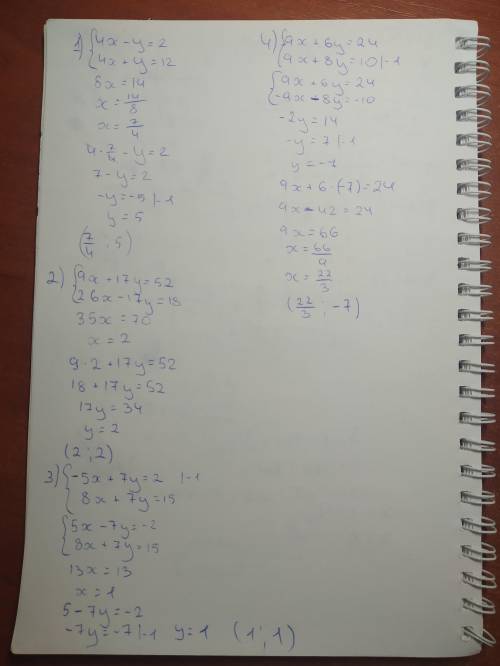 1) {4x - y = 2
4x + y = 12
8x = 14
x = 14/8
x = 7/4
4 · 7/4 - y = 2
7 - y = 2
-y = -5 |·-1
y = 5
(7/4 ; 5)
2) {9x + 17y = 52
26x - 17y = 18
35x = 70
x = 2
9 · 2 + 17y = 52
18 + 17y = 52
17y = 34
y = 2
(2 ; 2)
3) {-5x + 7y = 2 |·-1
8x + 7y = 15
{5x - 7y = -2
8x + 7y = 15
13x = 13
x = 1
5 - 7y = -2
-7y = -7 |·-1 y = 1 (1 ; 1)
4) {9x + 6y = 24
9x + 8y = 10 |·-1
{9x + 6y = 24
-9x - 8y = -10
-2y = 14
-y = 7 |·-1
y = -7
9x + 6 · (-7) = 24
9x - 42 = 24
9x = 66
x = 66/9
x = 22/3
(22/3 ; -7)